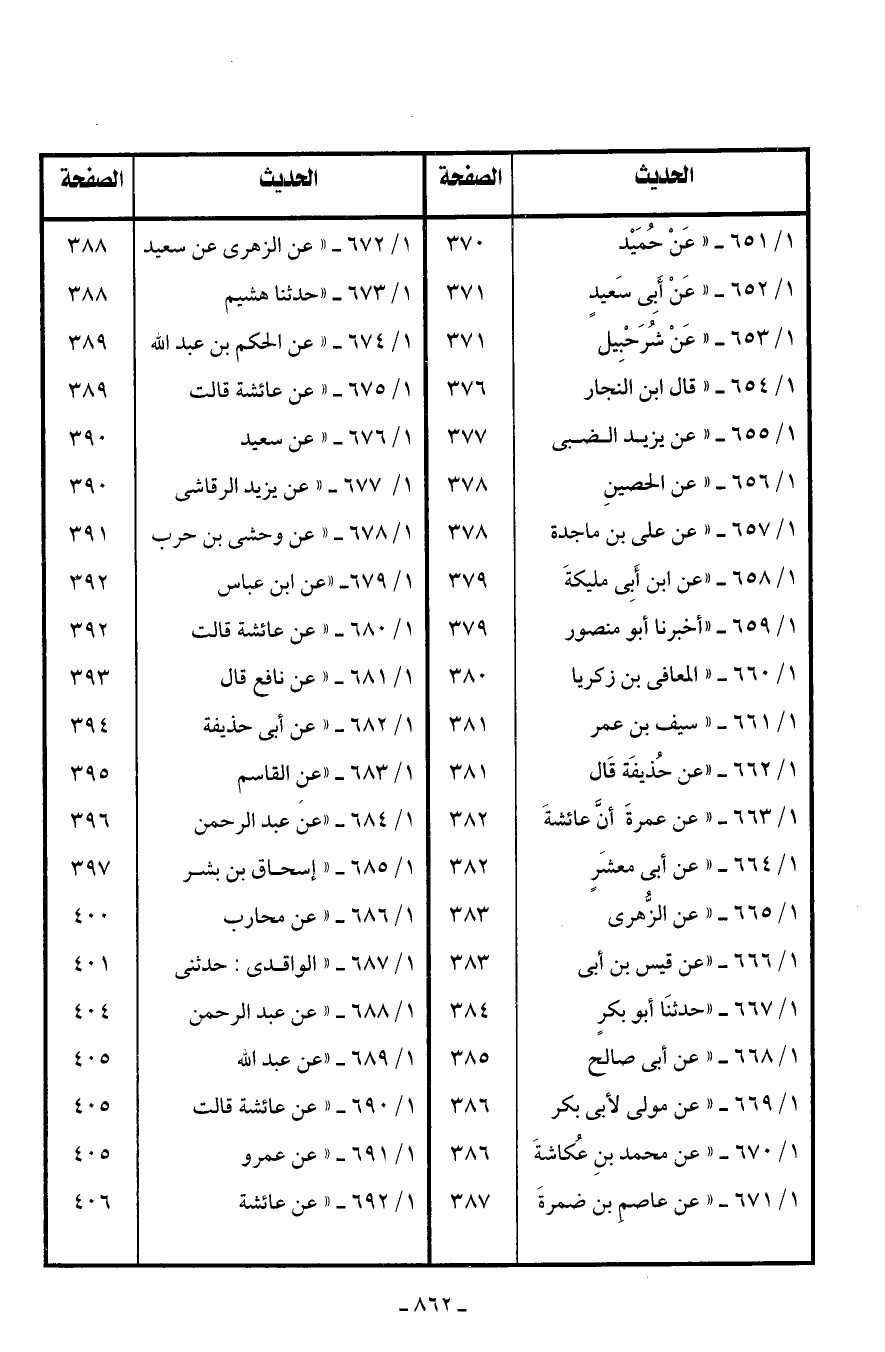 الحديث الصفحة الحديث الصفحة
١/ ٦٥١ ـ « عَنْ حُمَيْد ٣٧٠ ١/ ٦٧٢ ـ « عن الزهرى عن سعيد ٣٨٨
١/ ٦٥٢ ـ « عَنْ أَبِى سَعيدٍ ٣٧١ ١/ ٦٧٣ ـ «حدثنا هشيم ٣٨٨
١/ ٦٥٣ ـ « عَنْ شُرَحْبِيل ٣٧١ ١/ ٦٧٤ ـ « عن الحكم بن عبد الله ٣٨٩
١/ ٦٥٤ ـ « قال ابن النجار ٣٧٦ ١/ ٦٧٥ ـ « عن عائشة قالت ٣٨٩
١/ ٦٥٥ ـ « عن يزيـد الـضـبى ٣٧٧ ١/ ٦٧٦ ـ « عن سعيد ٣٩٠
١/ ٦٥٦ ـ « عن الحصينِ ٣٧٨ ١/ ٦٧٧ ـ « عن يزيد الرقاشى ٣٩٠
١/ ٦٥٧ ـ « عن على بن ماجدة ٣٧٨ ١/ ٦٧٨ ـ « عن وحشى بن حرب ٣٩١
١/ ٦٥٨ ـ «عن ابن أَبِى مليكةَ ٣٧٩ ١/ ٦٧٩ـ «عن ابن عباس ٣٩٢
١/ ٦٥٩ ـ «أخبرنا أبو منصور ٣٧٩ ١/ ٦٨٠ ـ « عن عائشة قالت ٣٩٢
١/ ٦٦٠ ـ « المعافى بن زكريا ٣٨٠ ١/ ٦٨١ ـ « عن نافع قال ٣٩٣
١/ ٦٦١ ـ « سيف بن عمر ٣٨١ ١/ ٦٨٢ ـ « عن أبى حذيفة ٣٩٤
١/ ٦٦٢ ـ «عن حُذيفَة قَال ٣٨١ ١/ ٦٨٣ ـ «عن القاسم ٣٩٥
١/ ٦٦٣ ـ « عن عمرةَ أنَّ عائشةَ ٣٨٢ ١/ ٦٨٤ ـ «عن عبد الرحمن ٣٩٦
١/ ٦٦٤ ـ « عن أبى معشَرٍ ٣٨٢ ١/ ٦٨٥ ـ « إسحـاق بن بشـر ٣٩٧
١/ ٦٦٥ ـ « عن الزُّهرى ٣٨٣ ١/ ٦٨٦ ـ « عن محارب ٤٠٠
١/ ٦٦٦ ـ «عن قيس بن أبى ٣٨٣ ١/ ٦٨٧ ـ « الواقـدى : حدثنى ٤٠١
١/ ٦٦٧ ـ «حدثنَا أبو بكرٍ ٣٨٤ ١/ ٦٨٨ ـ « عن عبد الرحمن ٤٠٤
١/ ٦٦٨ ـ « عن أبى صالح ٣٨٥ ١/ ٦٨٩ ـ «عن عبد الله ٤٠٥
١/ ٦٦٩ ـ « عن مولى لأبى بكر ٣٨٦ ١/ ٦٩٠ ـ « عن عائشة قالت ٤٠٥
١/ ٦٧٠ ـ « عن محمد بنِ عُكاشةَ ٣٨٦ ١/ ٦٩١ ـ « عن عمرو ٤٠٥
١/ ٦٧١ ـ « عن عاصمِ بن ضمرةَ ٣٨٧ ١/ ٦٩٢ ـ « عن عائشة ٤٠٦
ـ ٨٦٢ ـ